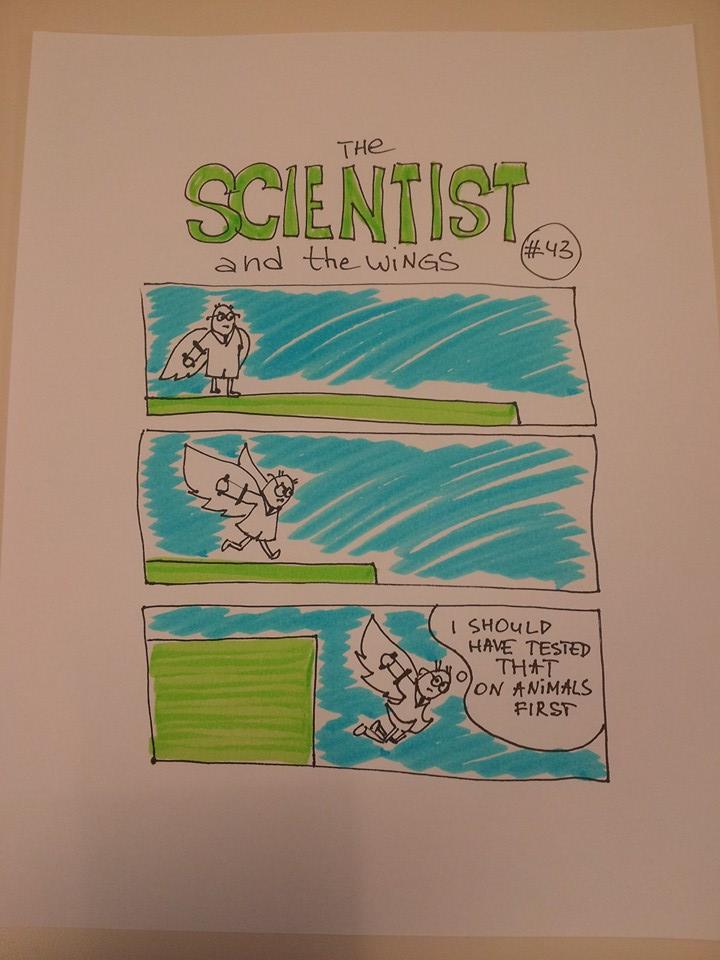 THe
SCIENTIST
and the WiNGS
#43
I SHOULD
HAVE TESTED
THAT
ON ANiMALS
FIRST